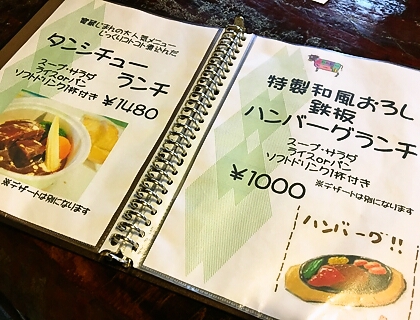 當店じまんの大人気メニュー
じっくりコトコト煮込んだ
タンシチュー
ランチ
スープ・サラダ
ライスorパン
ソフトドリンク1杯付き
¥1480
※デザートは別になります
特製和風おろし
鉄板
ハンバーグランチ
スープ・サラダ
ライスorパン
ソフトドリンク1杯付き
¥1000
※デザートは別になります
ハンバーグ!!